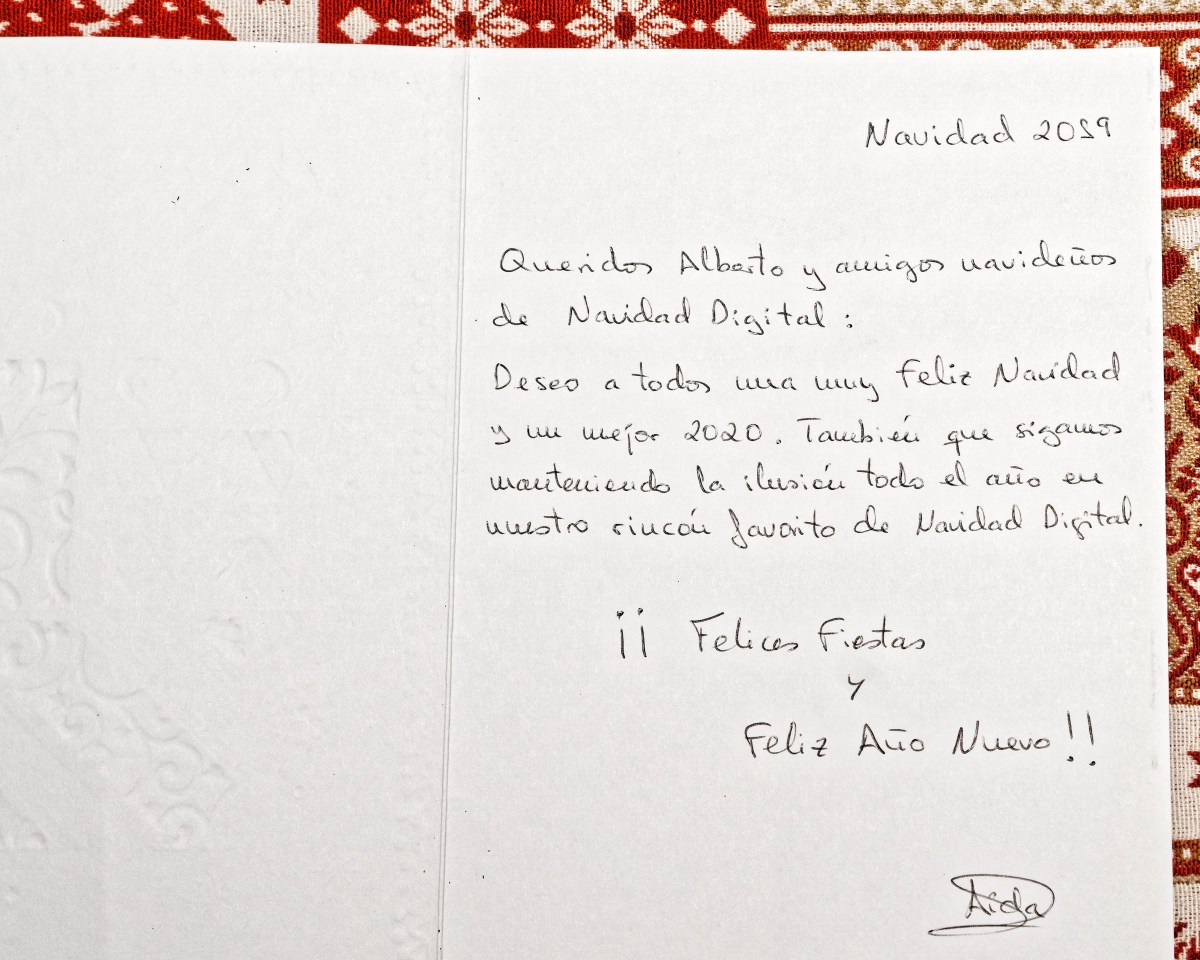 Navidad 2019
Queridos Alberto y amigos navideños
de Navidad Digital:
Deseo a todos una muy Feliz Navidad
y un mejor 2020. También que sigamos
manteniendo la ilusión todo el año en
nuestro rincón favorito de Navidad Digital.
¡¡ Felices Fiestas
y
Feliz Año Nuevo!!
Aida